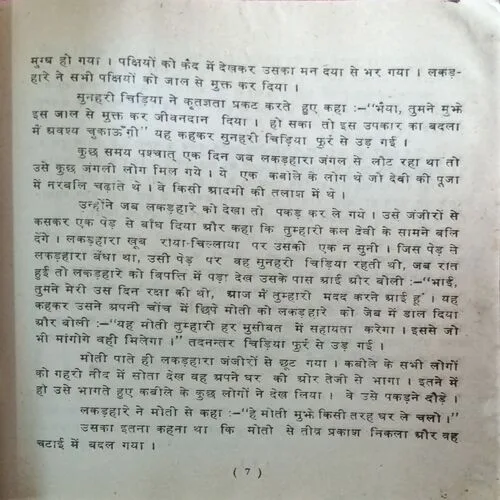 मुग्ध हो गया । पक्षियों को कैद में देखकर उसका मन दया से भर गया । लकड़-
हारे ने सभी पक्षियों को जाल से मुक्त कर दिया ।
सुनहरी चिड़िया ने कृतज्ञता प्रकट करते हुए कहा :–"भैया, तुमने मुझे
इस जाल से मुक्त कर जीवनदान दिया । हो सका तो इस उपकार का बदला
में अवश्य चुकाऊँगी" यह कहकर सुनहरी चिड़िया फुर्र से उड़ गई ।
कुछ समय पश्चात् एक दिन जब लकड़हारा जंगल से लौट रहा था तो
उसे कुछ जंगली लोग मिल गये । ये एक कबीले के लोग थे जो देवी की पूजा
में नरबलि चढ़ाते थे । वे किसी आदमी की तलाश में थे ।
उन्होंने जब लकड़हारे को देखा तो पकड़ कर ले गये । उसे जंजीरों से
कसकर एक पेड़ से बाँध दिया और कहा कि तुम्हारी कल देवी के सामने बलि
देंगे । लकड़हारा खूब राया-चिल्लाया पर उसकी एक न सुनी । जिस पेड़ से
लकड़हारा बंधा था, उसी पेड़ पर वह सुनहरी चिड़िया रहती थी, जब रात
हुई तो लकड़हारे को विपत्ति में पड़ा देख उसके पास आई और बोली :–"भाई,
तुमने मेरी उस दिन रक्षा की थी, आज में तुम्हारी मदद करने आई हूं । यह
कहकर उसने अपनी चोंच में छिपे मोती को लकड़हारे को जेब में डाल दिया
और बोली :–"यह मोती तुम्हारी हर मुसीबत में सहायता करेगा । इससे जो
भी मांगोगे वही मिलेगा ।" तदनन्तर चिड़िया फुर्र से उड़ गई ।
मोती पाते ही लकड़हारा जंजीरों से छूट गया । कबीले के सभी लोगों
को गहरी नींद में सोता देख वह अपने घर की ओर तेजी से भागा । इतने में
हो उसे भागते हुए कबीले के कुछ लोगों ने देख लिया । वे उसे पकड़ने दौड़े ।
लकड़हारे ने मोती से कहा :–"हे मोती मुझे किसी तरह घर ले चलो ।"
उसका इतना कहना था कि मोती से तीव्र प्रकाश निकला और वह
चटाई में बदल गया ।
( 7 )